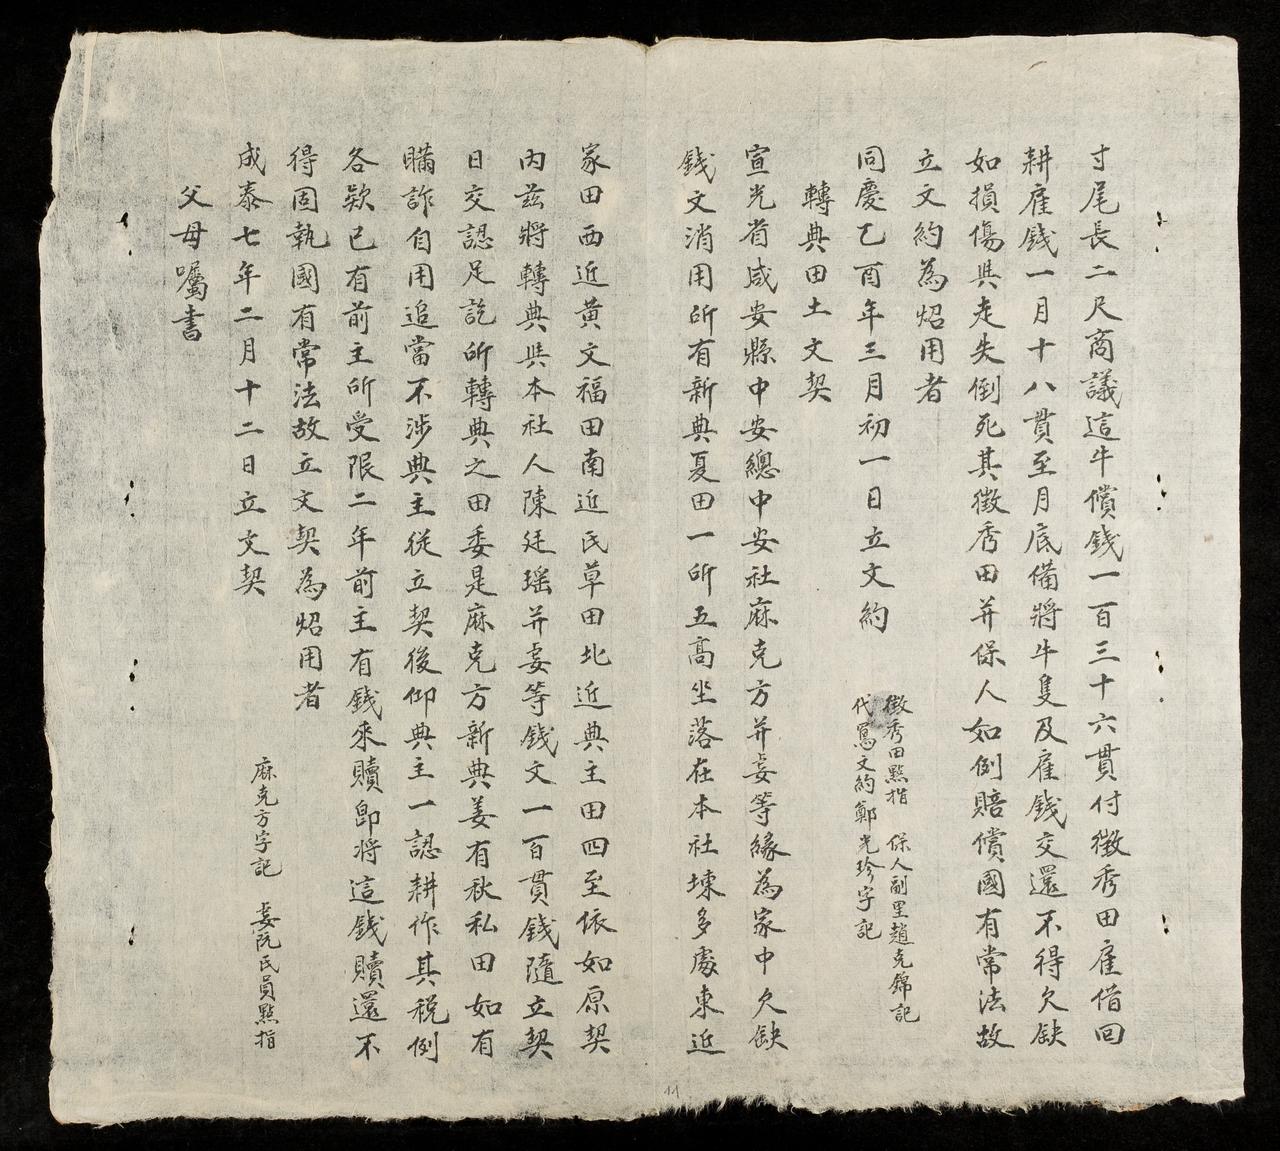 寸尾長二尺商議這牛償錢一百三十六貫付徵秀田雇借回
耕雇錢一月十八貫至月底備將牛隻及雇錢交還不得欠缺
如損傷與走失倒死其徵秀田并保人如例賠償國有常法故
立文約為炤用者
同慶乙酉年三月初一日立文約
徵秀田㸃指 保人副里趙克錦記
代寫文約鄭光珍字記
轉典田土文契
宣光省咸安縣中安總中安社麻克方并妾等緣為家中欠缺
錢文消用所有新典夏田一所五高坐落在本社埬多處東近
家田西近黃文福田南近民草田北近典主田四至依如原契
內兹將轉典與本社人陳廷瑶并妾等錢文一百貫錢隨立契
日交認足訖所轉典之田委是麻克方新典姜有秋私田如有
瞞詐自用追當不涉典主從立契後仰典主一認耕作其稅例
各欵已有前主所受限二年前主有錢來贖卽將這錢贖還不
得固執國有常法故立文契為炤用者
成泰七年二月十二日立文契
麻克方字記 妾阮氏員㸃指
父母囑書
11